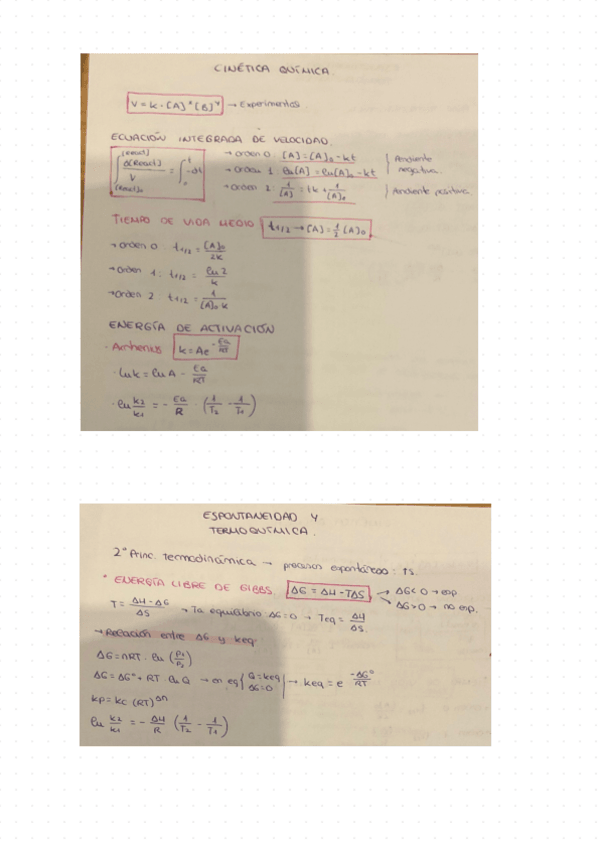 CINÉTICA QUÍMICA
V = k · [A]ˣ [B]ʸ → Experimentos
ECUACIÓN INTEGRADA DE VELOCIDAD.
∫[React]₀^[React] d[React]/V = ∫₀^t -dt
→ Orden 0 : [A] = [A]₀ - kt
→ Orden 1 : ln[A] = ln[A]₀ - kt
} Pendiente negativa.
→ Orden 2 : 1/[A] = tk + 1/[A]₀ } Pendiente positiva.
TIEMPO DE VIDA MEDIO t1/2 → [A] = 1/2 [A]₀
→ Orden 0 : t1/2 = [A]₀/2k
→ Orden 1 : t1/2 = ln 2/k
→ Orden 2 : t1/2 = 1/[A]₀·k
ENERGÍA DE ACTIVACIÓN
· Arrhenius k = Ae^(-Ea/RT)
· lnk = lnA - Ea/RT
· ln k2/k1 = - Ea/R · (1/T2 - 1/T1)
ESPONTANEIDAD Y
TERMOQUÍMICA.
2º Princ. termodinámica → procesos espontáneos : ↑S.
· ENERGÍA LIBRE DE GIBBS. ΔG = ΔH - TΔS → ΔG < 0 → esp.
→ ΔG > 0 → no esp.
T = ΔH - ΔG/ΔS → Ta equilibrio : ΔG = 0 → Teq = ΔH/ΔS.
→ Relación entre ΔG y keq.
ΔG = nRT · ln (P1/P2)
ΔG = ΔGº + RT · ln Q → en eq { Q = keq ΔG = 0 → keq = e^(-ΔGº/RT)
kp = kc (RT)^Δn
ln k2/k1 = - ΔH/R (1/T2 - 1/T1)